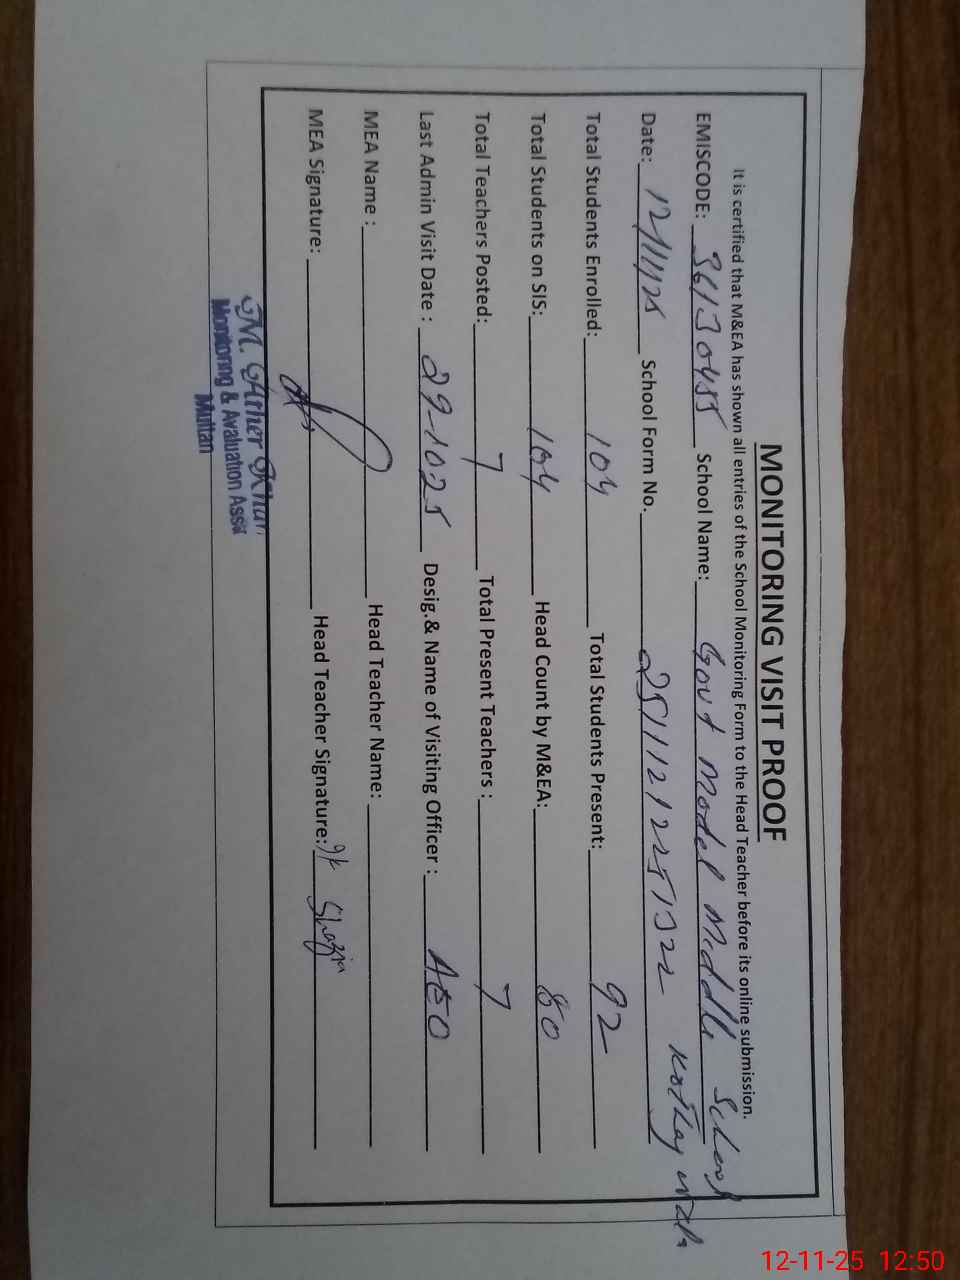 MONITORING VISIT PROOF
It is certified that M&EA has shown all entries of the School Monitoring Form to the Head Teacher before its online submission.
EMISCODE: 36130455 School Name: Govt Model Middle School
Kothay wala
Date: 12/11/25 School Form No. 251112122522
Total Students Enrolled: 104 Total Students Present: 92
Total Students on SIS: 104 Head Count by M&EA: 80
Total Teachers Posted: 7 Total Present Teachers : 7
Last Admin Visit Date : 29-1025 Desig.& Name of Visiting Officer : AEO
MEA Name : Head Teacher Name:
MEA Signature: Head Teacher Signature: Shazia
M. Ather Khan
Monitoring & Avaluation Assit
Multan
12-11-25 12:50